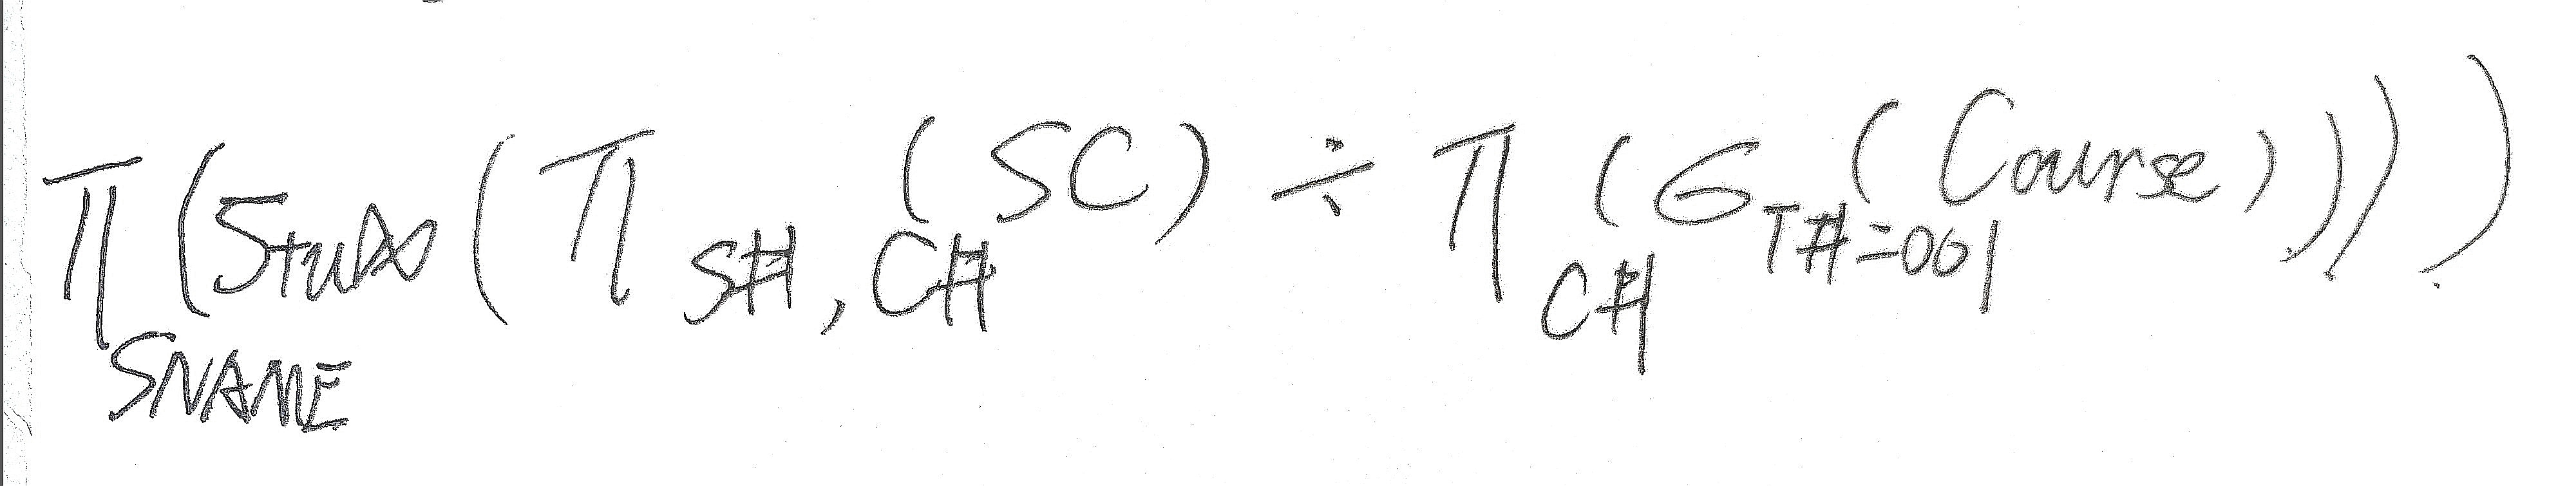 π SNAME (Stu⋈(π S#, C# (SC) ÷ π C# (σ T#=001 (Course))))